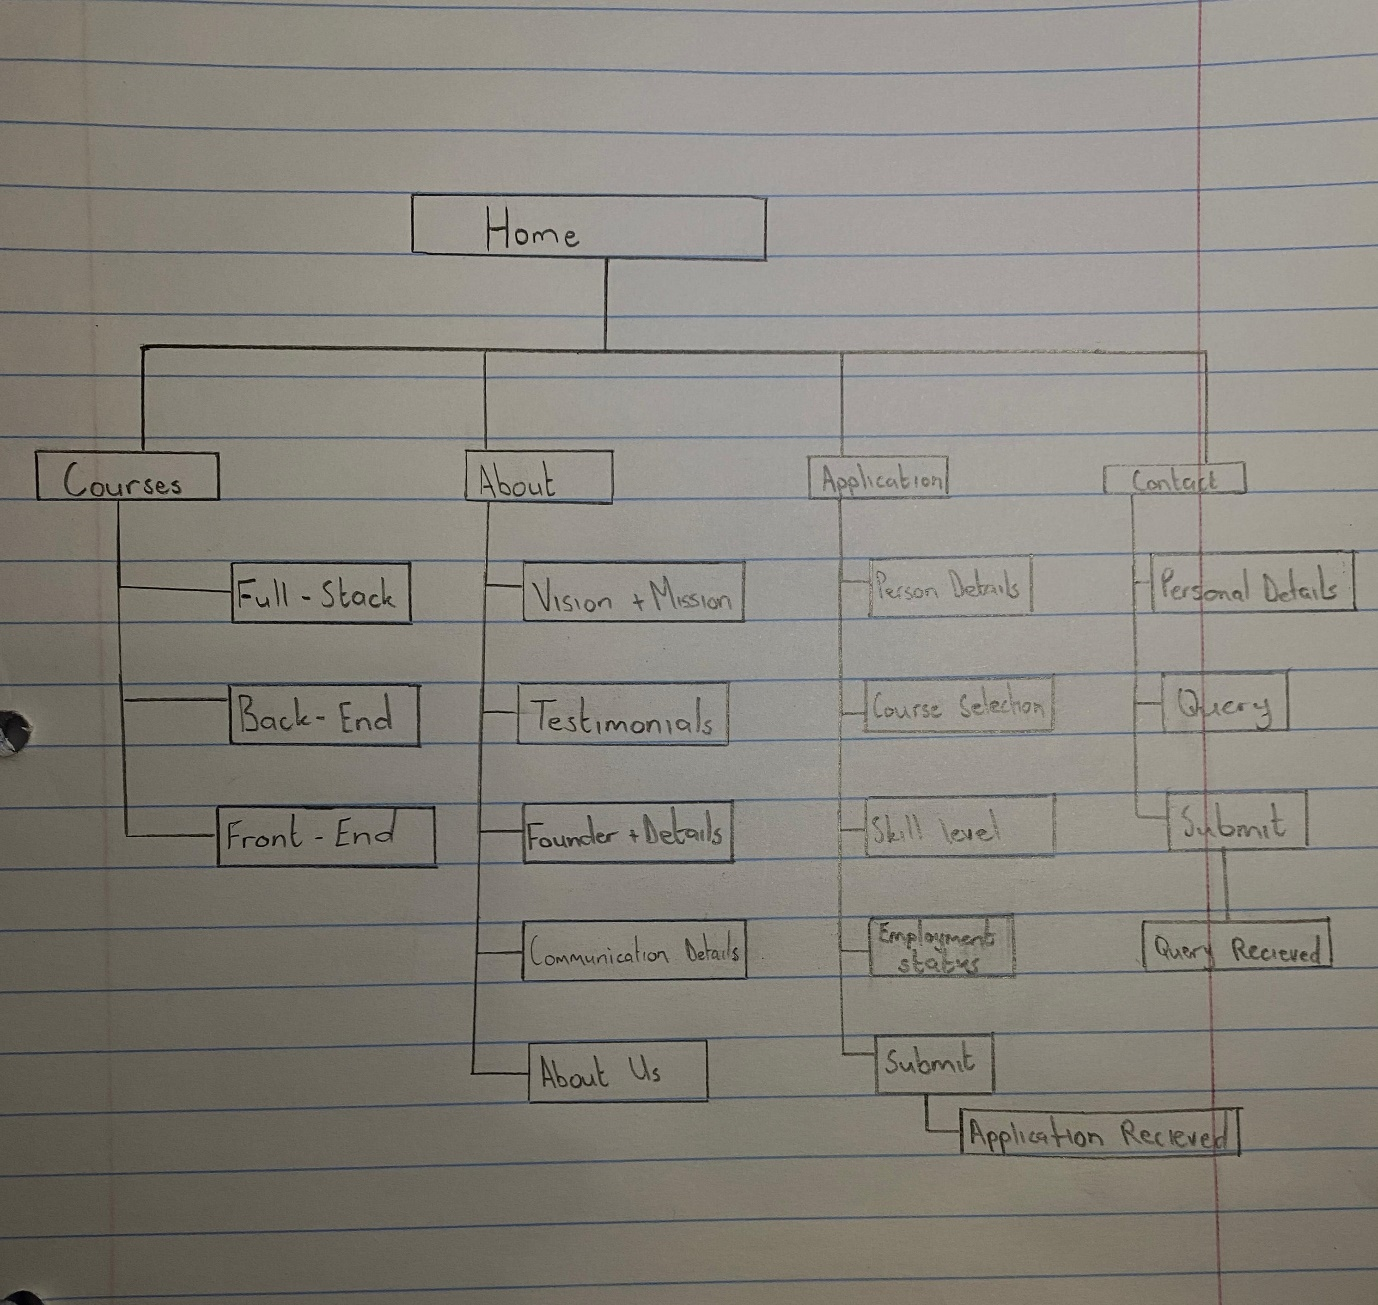 Home
Courses
About
Application
Contact
Full - Stack
Back - End
Front - End
Vision + Mission
Testimonials
Founder + Details
Communication Details
About Us
Person Details
Course Selection
Skill level
Employment
status
Submit
Application Recieved
Personal Details
Query
Submit
Query Recieved